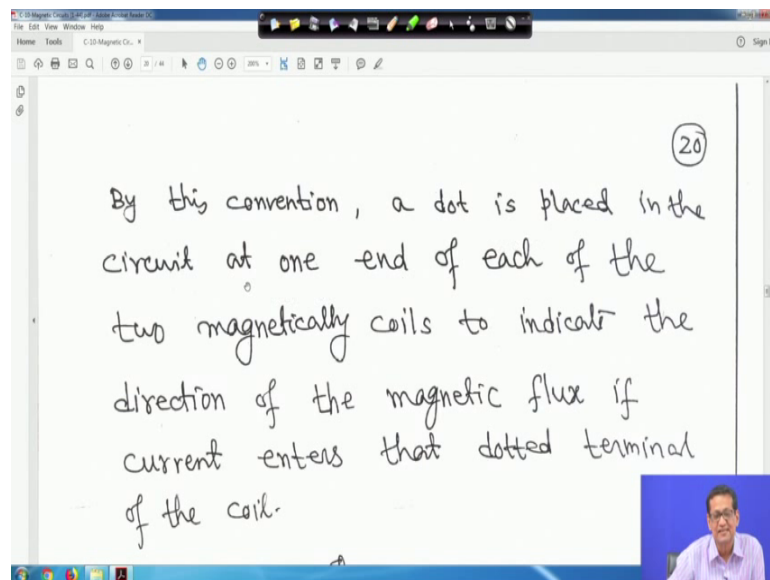 C-10-Magnetic Circuits (1-44).pdf - Adobe Acrobat Reader DC
File Edit View Window Help
Home Tools C-10-Magnetic Cir... × Sign I
20 / 44 200%
20
By this convention, a dot is placed in the
circuit at one end of each of the
two magnetically coils to indicate the
direction of the magnetic flux if
current enters that dotted terminal
of the coil.